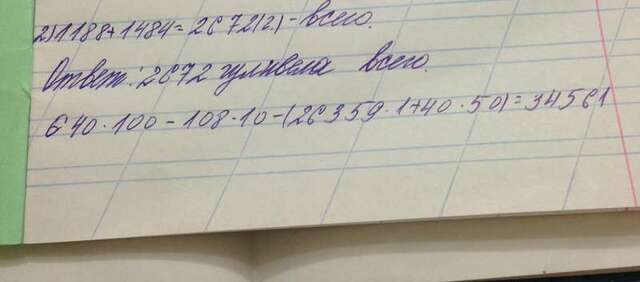 2) 1188+1484=2672(г)-всего.
Ответ: 2672 гулливела всего.
640·100-108·10-(26359·1+40·50)=34561